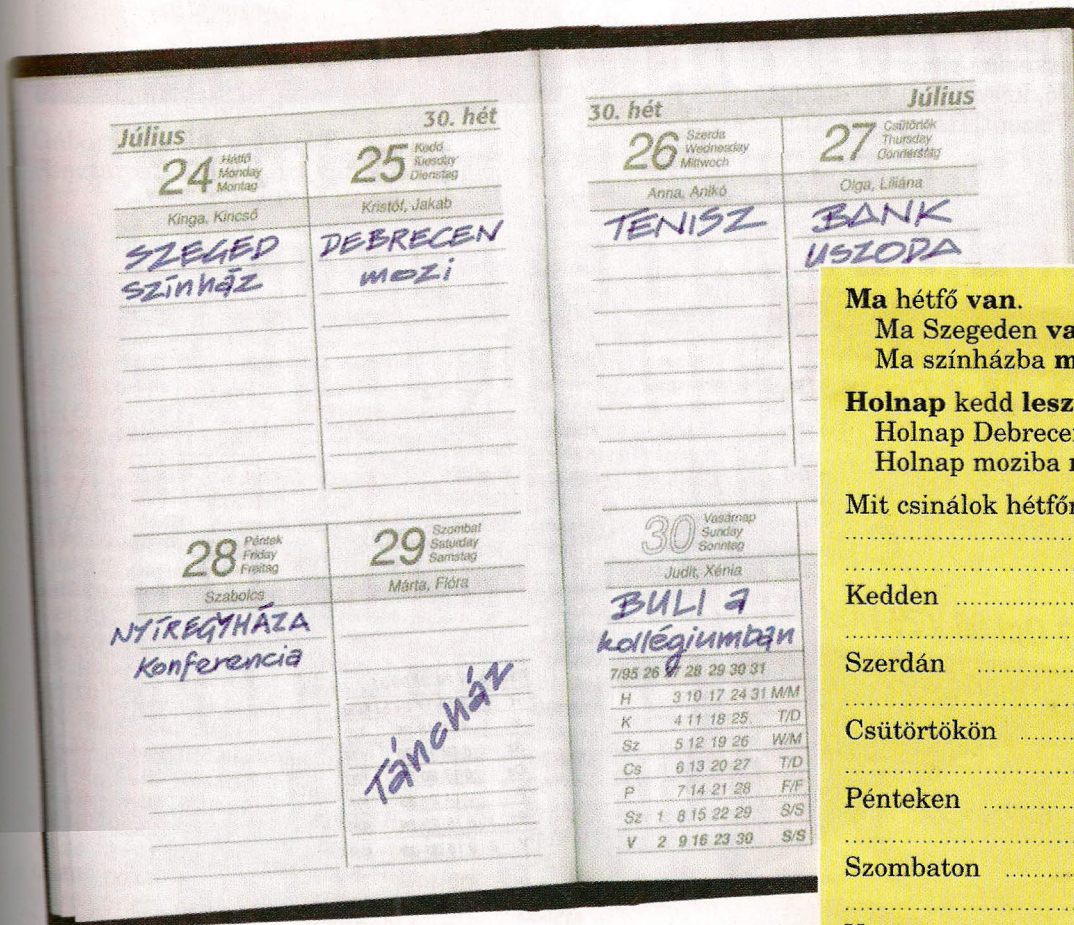 Július 30. hét
24 Hétfő
Monday
Montag
Kinga, Kincső
SZEGED
színház
25 Kedd
Tuesday
Dienstag
Kristóf, Jakab
DEBRECEN
mozi
28 Péntek
Friday
Freitag
Szabolcs
NYÍREGYHÁZA
Konferencia
29 Szombat
Saturday
Samstag
Márta, Flóra
Táncház
30. hét Július
26 Szerda
Wednesday
Mittwoch
Anna, Anikó
TENISZ
27 Csütörtök
Thursday
Donnerstag
Olga, Liliána
BANK
USZODA
30 Vasárnap
Sunday
Sonntag
Judit, Xénia
BULI a
kollégiumban
7/95 26 27 28 29 30 31
H 3 10 17 24 31 M/M
K 4 11 18 25 T/D
Sz 5 12 19 26 W/M
Cs 6 13 20 27 T/D
P 7 14 21 28 F/F
Sz 1 8 15 22 29 S/S
V 2 9 16 23 30 S/S
Ma hétfő van.
Ma Szegeden va
Ma színházba m
Holnap kedd lesz
Holnap Debrece
Holnap moziba
Mit csinálok hétfő
Kedden
Szerdán
Csütörtökön
Pénteken
Szombaton